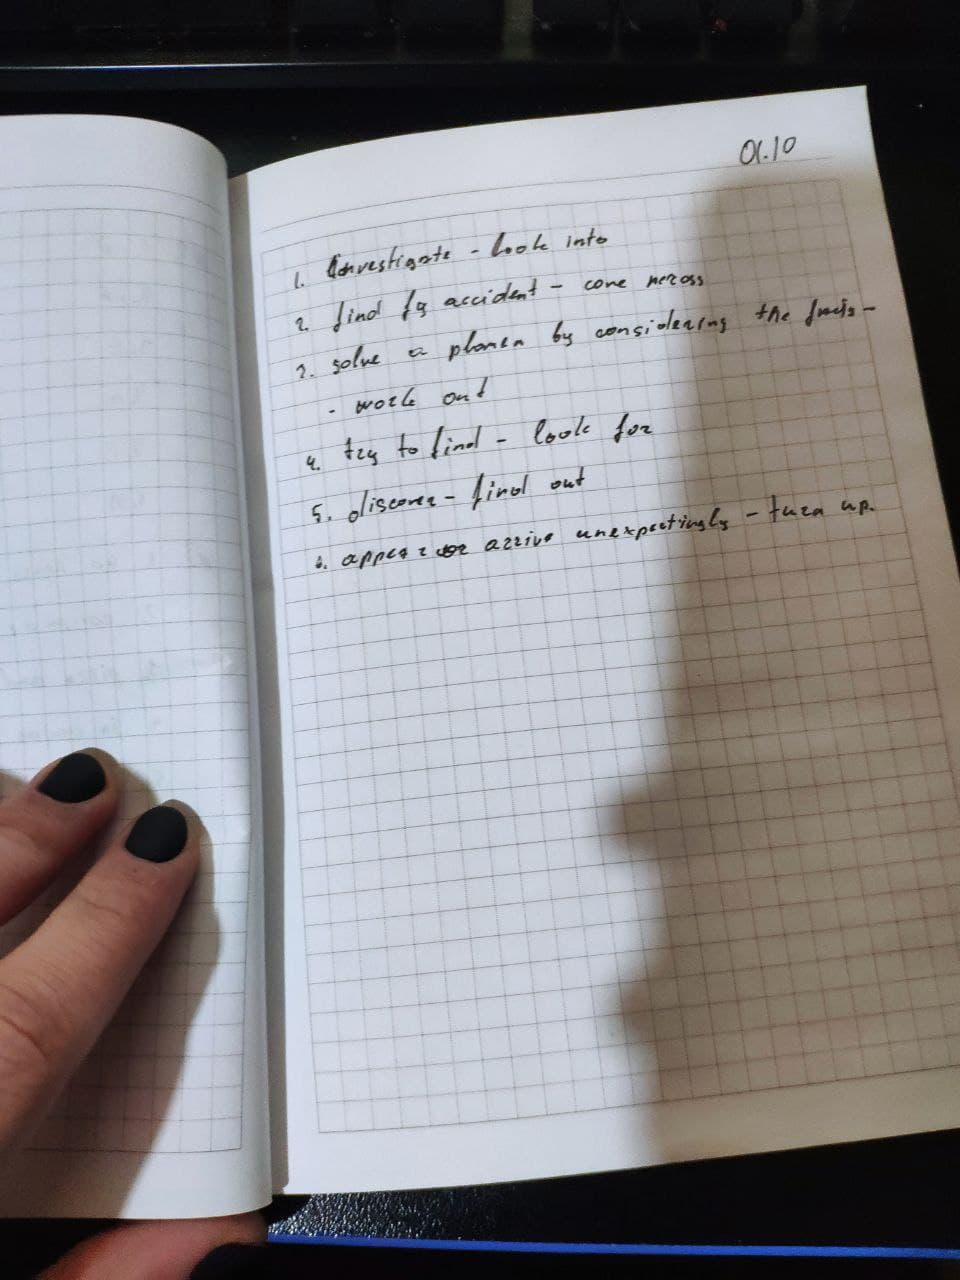 01.10
1. Investigate - look into
2. find by accident - come across
3. solve a by considering the facts -
- work out
4. try to find - look for
5. discover - find out
6. appear or arrive unexpectingly - turn up.